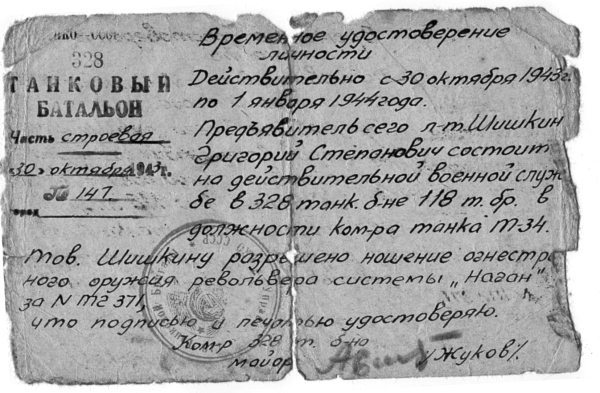 НКО СССР
328
ТАНКОВЫЙ
БАТАЛЬОН
Часть строевая
"30" октября 1943 г.
№ 147
Временное удостоверение
личности
Действительно с 30 октября 1943г.
по 1 января 1944 года.
Предъявитель сего л-т Шишкин
Григорий Степанович состоит
на действительной военной служ-
бе в 328 танк. б-не 118 т. бр. в
должности ком-ра танка Т-34.
Тов. Шишкину разрешено ношение огнестре
ного оружия револьвера системы „Наган"
за N
что подписью и печатью удостоверяю.
Ком-р 328 т. б-на
майор /Жуков/.